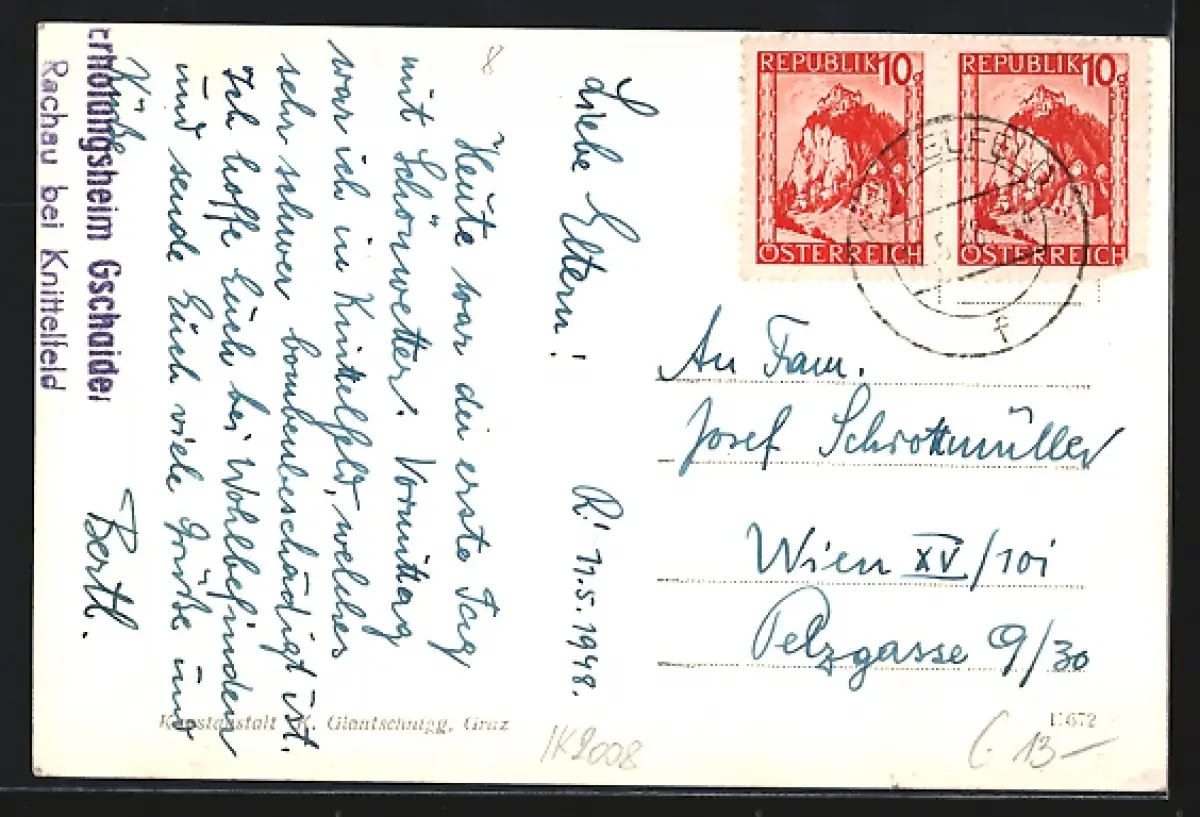 Liebe Eltern! R! 11.5.1948.
Heute war der erste Tag
mit Schönwetter. Vormittag
war ich in Knittelfeld, welches
sehr schwer bombenbeschädigt ist.
Ich hoffe Euch bei Wohlbefinden
und sende Euch viele Grüße und
Küsse Bertl.
Erholungsheim Gschaider
Rachau bei Knittelfeld
REPUBLIK 10g
ÖSTERREICH
REPUBLIK 10g
ÖSTERREICH
TELFELD
f
An Fam.
Josef Schrottmüller
Wien XV/101
Pelzgasse 9/30
Kunstanstalt K. Glantschnigg, Graz
672
1K2008
13—
8